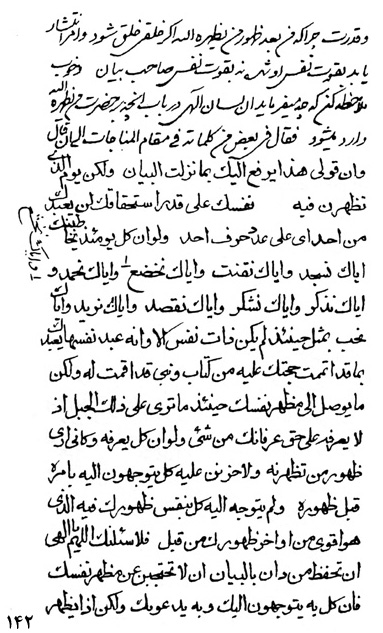 وقدرت چرا که من بعد ظهور من یظهره الله اگر خلقی خلق شود وامر انتشار
یابد بقوت نفس او شده نه بقوت نفس صاحب بیان وخوب
ملاحظه کنید که چه میفرماید ان لسان الهی درباب انچه بر حضرت من یظهره الله
وارد میشود فقال فی بعض من کلماته فی مقام المناجات الیه قال
وان قولی هذا یرفع الیك بما نزلت البیان ولکن یوم الذی
تظهرن فیه نفسك علی قدر استحقاقك لن یعبدك
من احد ای علی عدد حروف احد ولو ان کل یومئذ تخاطبنك
ایاك نسجد وایاك نقنت وایاك نخضع وایاك نحمد و
ایاك نذکر وایاك نشکر وایاك نقصد وایاك نرید وایاك
نحب بمثل حینئذ لم یکن ذات نفس الا وانه عبد نفسها بعد
بما قد اتمت حجتك علیه من کتاب ونبی قد اقمت له ولکن
ما یوصل الی مظهر نفسك حینئذ ما تری علی ذلك الجبل اذ
لا یعرفه علی حق عرفانك من شئ ولو ان کل یعرفه وکانی اری
ظهور من تظهرنه ولاحزنن علیه کل یتوجهون الیه بامره
قبل ظهوره ولم یتوجه الیه کل بنفس ظهورك فیه الذی
هو اقوی من اوامر ظهورك من قبل فلاسئلنك اللهم یا الهی
ان تحفظ من دان بالبیان ان لا تحتجبن عن مظهر نفسك
فان کل به یتوجهون الیك وبه یدعونك ولکن اذا یظهر
۱۴۲